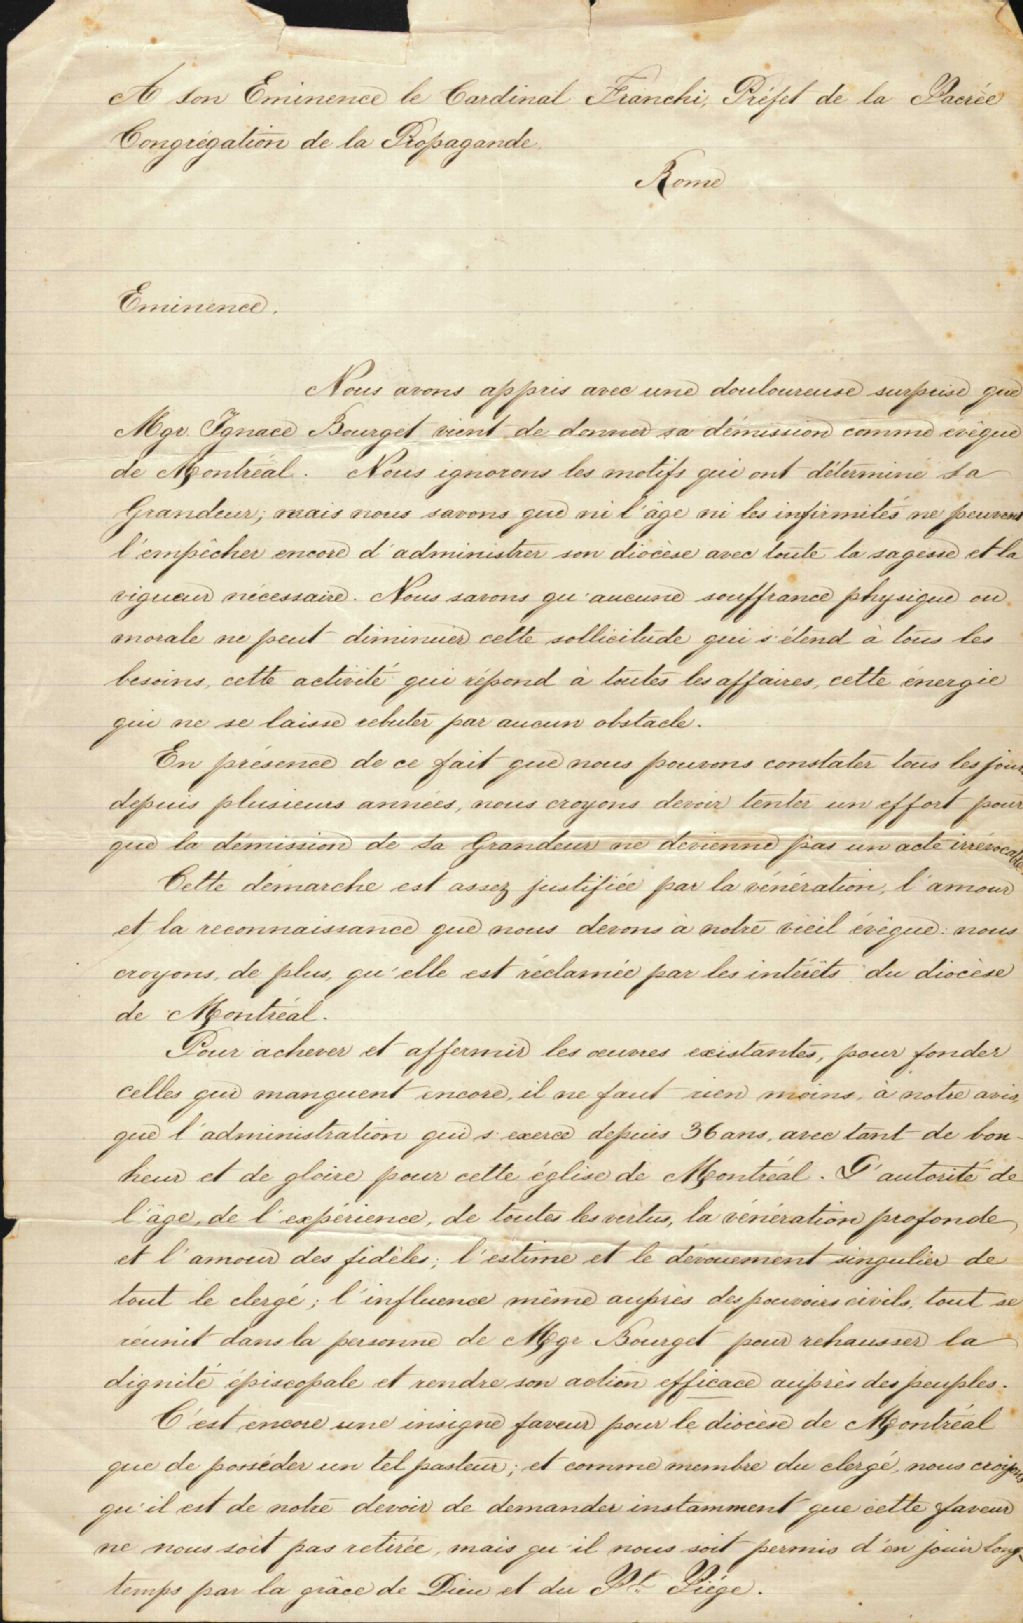 A son Eminence le Cardinal Franchi, Préfet de la Sacrée
Congrégation de la Propagande.
Rome
Eminence.
Nous avons appris avec une douloureuse surprise que
Mgr. Ignace Bourget vient de donner sa démission comme évêque
de Montréal. Nous ignorons les motifs qui ont déterminé Sa
Grandeur; mais nous savons que ni l'âge ni les infirmités ne peuvent
l'empêcher encore d'administrer son diocèse avec toute la sagesse et la
vigueur nécessaire. Nous savons qu'aucune souffrance physique ou
morale ne peut diminuer cette sollicitude qui s'étend à tous les
besoins, cette activité qui répond à toutes les affaires, cette énergie
qui ne se laisse rebuter par aucun obstacle.
En présence de ce fait que nous pouvons constater tous les jours
depuis plusieurs années, nous croyons devoir tenter un effort pour
que la démission de Sa Grandeur ne devienne pas un acte irrévocable.
Cette démarche est assez justifiée par la vénération, l'amour
et la reconnaissance que nous devons à notre vieil évêque: nous
croyons, de plus, qu'elle est réclamée par les intérêts du diocèse
de Montréal.
Pour achever et affermir les œuvres existantes, pour fonder
celles qui manquent encore, il ne faut rien moins, à notre avis,
que l'administration qui s'exerce depuis 36 ans, avec tant de bon-
heur et de gloire pour cette église de Montréal. L'autorité de
l'âge, de l'expérience, de toutes les vertus, la vénération profonde
et l'amour des fidèles; l'estime et le dévouement singulier de
tout le clergé; l'influence même auprès des pouvoirs civils, tout se
réunit dans la personne de Mgr Bourget pour rehausser la
dignité épiscopale et rendre son action efficace auprès des peuples.
C'est encore une insigne faveur pour le diocèse de Montréal
que de posséder un tel pasteur; et comme membre du clergé, nous croyons
qu'il est de notre devoir de demander instamment que cette faveur
ne nous soit pas retirée, mais qu'il nous soit permis d'en jouir long-
temps par la grâce de Dieu et du St. Siége.